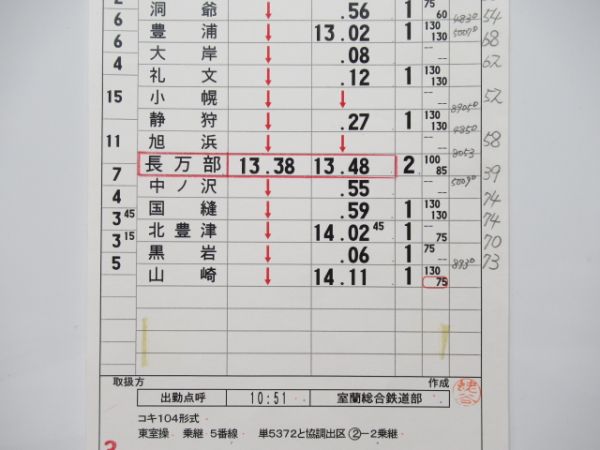 洞爺 ↓ .56 1 75 60 54
6 豊浦 ↓ 13.02 1 130 130 5007D 68
6 大岸 ↓ .08 -- -- 62
4 礼文 ↓ .12 1 130 130
15 小幌 ↓ ↓ -- -- 52
静狩 ↓ .27 1 130 130
11 旭浜 ↓ ↓ -- -- 58
7 長万部 13.38 13.48 2 100 85 39
4 中ノ沢 ↓ .55 -- -- 5009D 74
3 45 国縫 ↓ .59 1 130 130 74
3 15 北豊津 ↓ 14.02 45 1 -- 75 70
5 黒岩 ↓ .06 1 75 -- 73
山崎 ↓ 14.11 1 130 75
取扱方 作成
出勤点呼 10:51 室蘭総合鉄道部
コキ104形式
東室操 乗継 5番線 単5372と協調出区②-2乗継